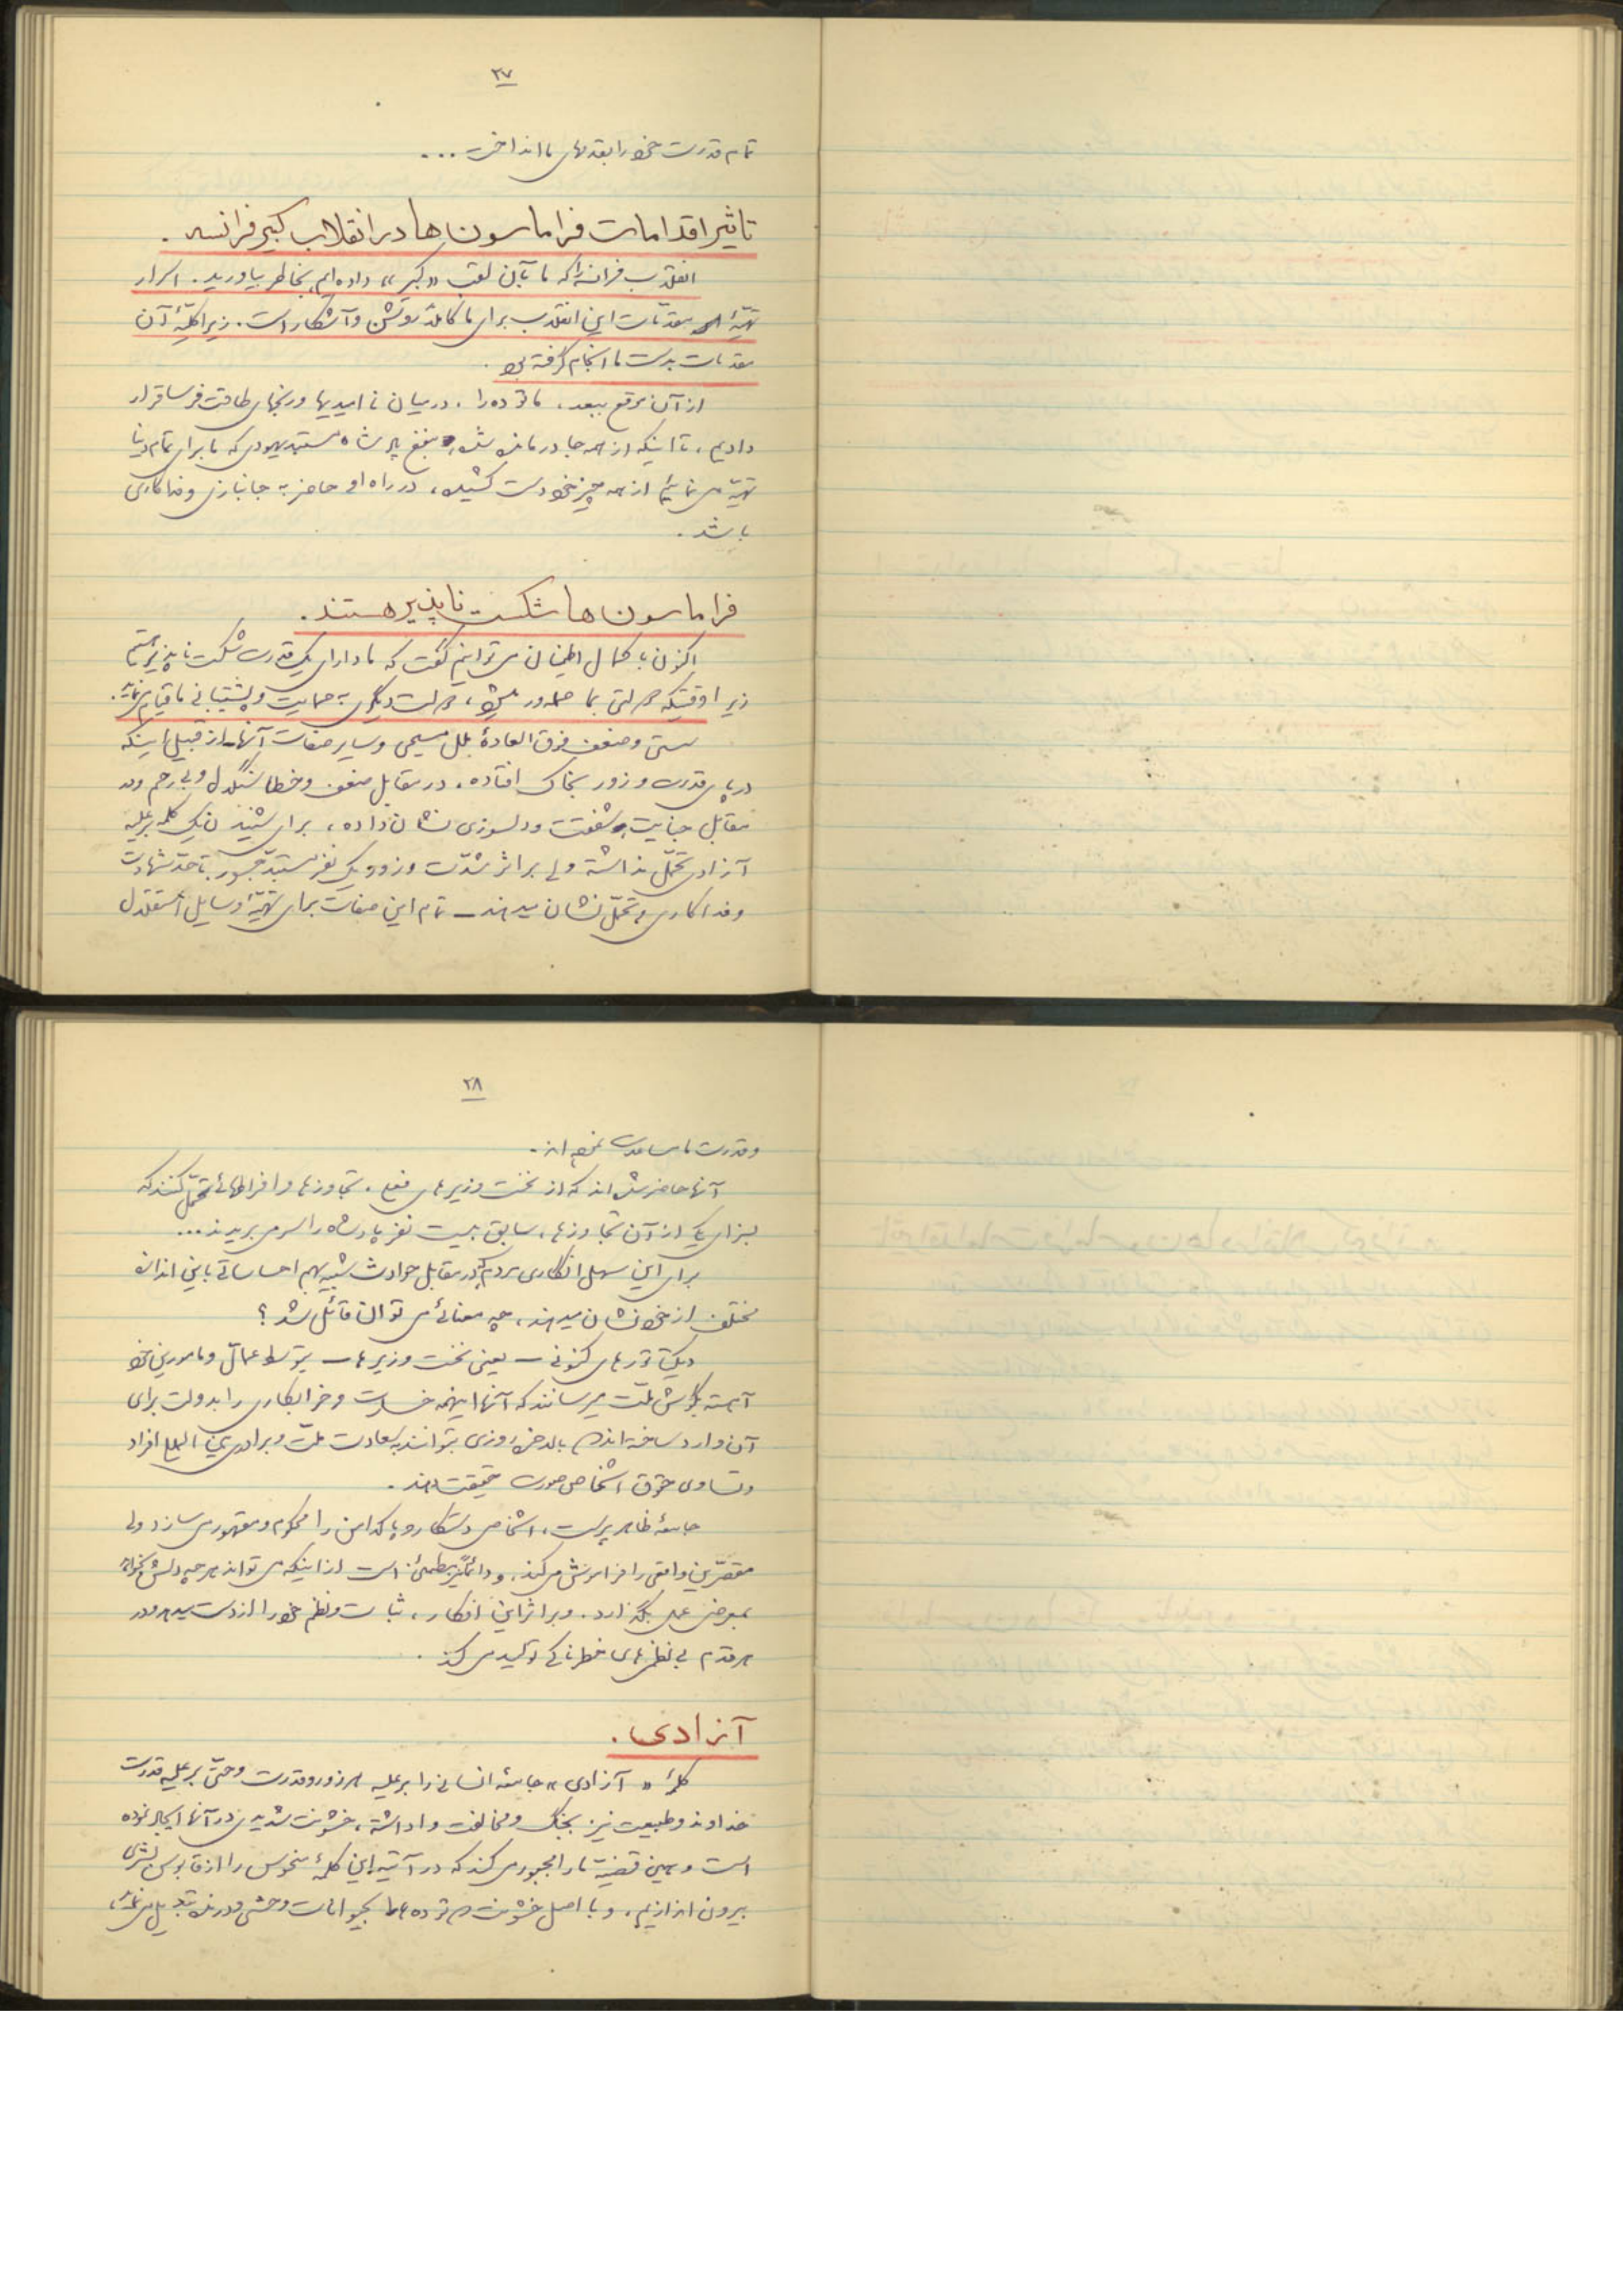 ۲۷
تمام قدرت خود را بقدمهای ما انداخت ...
تاثیر اقدامات فراماسون ها در انقلاب کبیر فرانسه .
انقلاب فرانسه را که ما بآن لقب «کبیر» داده ایم بخاطر بیاورید . اسرار
تهیّهٔ مقدّمات این انقلاب برای ما کاملاً روشن و آشکار است . زیرا کلیّهٔ آن
مقدمات بدست ما انجام گرفته بود .
از آن موقع ببعد ، ما توده را ، در میان نا امیدیها و رنجهای طاقت فرسا قرار
دادیم ، تا اینکه از همه جا درمانده شده بنفع پادشاه مستبد یهودی که ما برای تمام دنیا
تهیّه می نمائیم از همه چیز خود دست کشیده ، در راه او حاضر به جانبازی و فداکاری
باشد .
فراماسون ها شکست ناپذیر هستند .
اکنون با کمال اطمینان می توانیم گفت که ما دارای یک قدرت شکست ناپذیر هستیم
زیرا وقتیکه هر ملتی بما حمله ور میشود ، ملت دیگری به حمایت و پشتیبانی ما قیام می نماید .
سستی و ضعف فوق العادهٔ ملل مسیحی و سایر صفات آنها از قبیل اینکه
در پای قدرت و زور بخاک افتاده ، در مقابل ضعف و خطا سنگدل و بی رحم و در
مقابل جنایت شفقت و دلسوزی نشان داده ، برای شنیدن یک کلمه بر علیه
آزادی تحمّل نداشته ولی بر اثر شدّت و زور یک نفر مستبدّ جسور تا حدّ شهادت
و فداکاری و تحمّل نشان میدهند ــ تمام این صفات برای تهیّهٔ وسایل استقلال
۲۸
و قدرت ما مساعدت نموده اند .
آنها حاضر شده اند که از نخست وزیرهای فعلی ، تجاوزها و افراطهائی تحمّل کنند که
بسزای یکی از آن تجاوزها ، سابق بیست نفر پادشاه را سر می بریدند ...
برای این سهل انکاری مردم که در مقابل حوادث شبیه بهم احساساتی باین اندازه
مختلف از خود نشان میدهند ، چه معنائی می توان قائل شد ؟
دیکتاتورهای کنونی ــ یعنی نخست وزیرها ــ بتوسط عمّال و مامورین خود
آهسته بگوش ملّت میرسانند که آنها اینهمه خسارت و خرابکاری را بدولت برای
آن وارد ساخته اند که بالاخره روزی بتوانند به سعادت ملّت و برادری بین المللی افراد
و تساوی حقوق اشخاص صورت حقیقت دهند .
جامعهٔ ظاهر پرست ، اشخاص درستکار و پاکدامن را محکوم و مقهور می سازد ولی
مقصّرین واقعی را فراموش می کند ، و دائماً نیز مطمئن است از اینکه می تواند هر چه دلش بخواهد
بمعرض عمل بگذارد . و بر اثر این افکار ، ثبات و نظم خود را از دست میدهد و در
هر قدم بی نظمی های خطرناکی تولید می کند .
آزادی .
کلمهٔ « آزادی » جامعهٔ انسانی را بر علیه هر زور و قدرت و حتی بر علیه قدرت
خداوند و طبیعت نیز بجنگ و مخالفت وا داشته ، خشونت شدیدی در آنها ایجاد نموده
است و همین قضیّه ما را مجبور می کند که در آتیه این کلمهٔ منحوس را از قاموس بشری
بیرون اندازیم ، و با اصل خشونت که توده ها را بحیوانات وحشی و درنده تبدیل می نماید ،